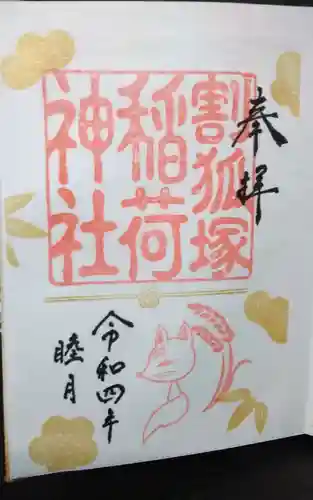 奉拝
割狐塚
稲荷
神社
令和四年
睦月